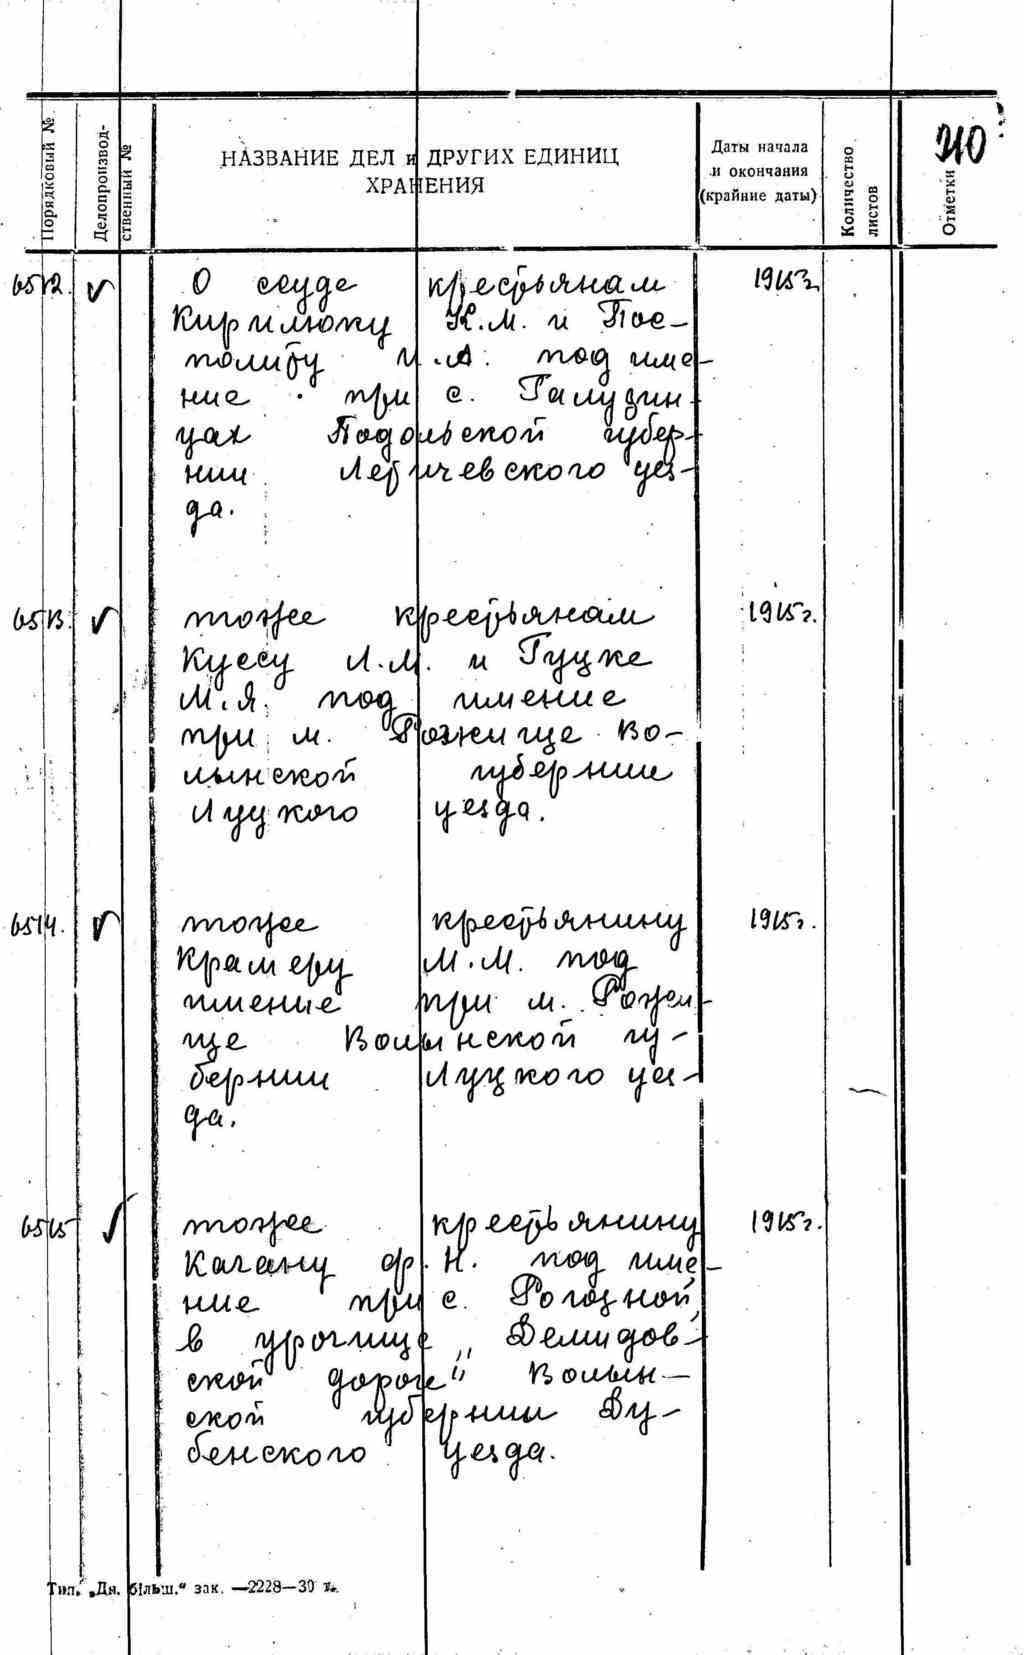 Порядковый №
Делопроизвод-
ственный №
НАЗВАНИЕ ДЕЛ и ДРУГИХ ЕДИНИЦ
ХРАНЕНИЯ
Даты начала
и окончания
(крайние даты)
Количество
листов
Отметки
210
6512. О ссуде крестьянам 1915г.
Кирилюку К.М. и Пос-
политу И.А. под име-
ние при с. Галузин-
цах Подольской губер-
нии Летичевского уез-
да.
6513. тоже крестьянам 1915г.
Куссу Л.М. и Гуцке
М.Я. под имение
при м. Рожище Во-
лынской губернии
Луцкого уезда.
6514. тоже крестьянину 1915г.
Крамеру М.М. под
имение при м. Рожи-
ще Волынской гу-
бернии Луцкого уез-
да.
6515 тоже крестьянину 1915г.
Кагану Ф.Н. под име-
ние при с. Рогозной,
в урочище „Демидов-
ской дороге" Волын-
ской губернии Ду-
бенского уезда.
Тип. „Дн. більш." зак. —2228—30